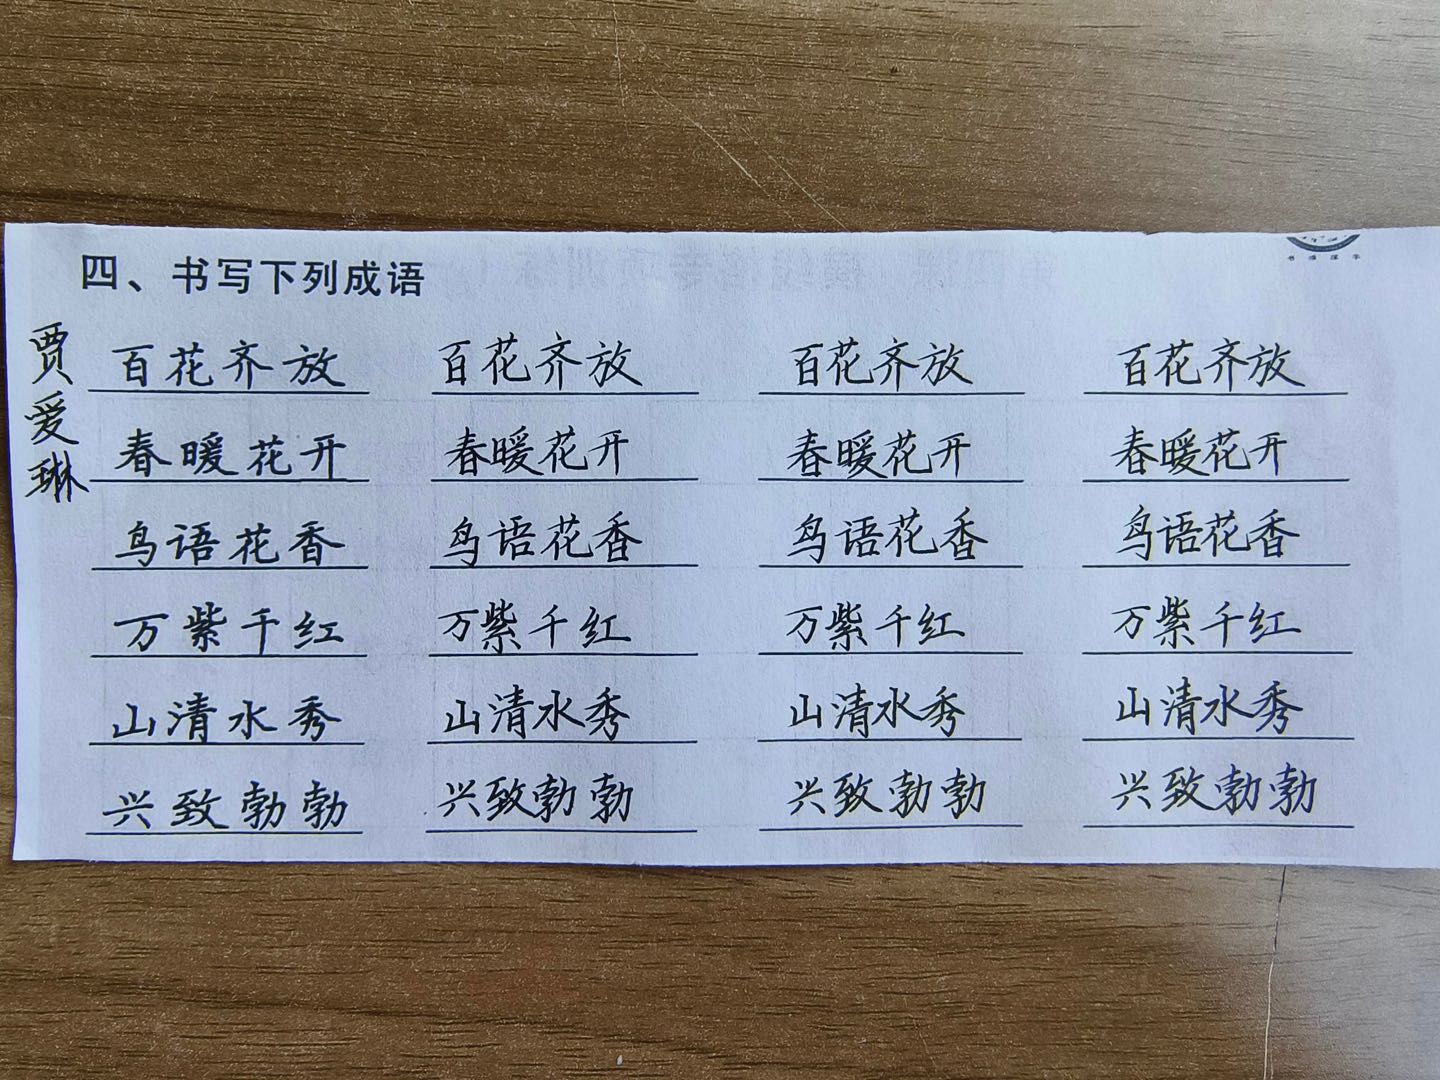 四、书写下列成语
贾爱琳
百花齐放 百花齐放 百花齐放 百花齐放
春暖花开 春暖花开 春暖花开 春暖花开
鸟语花香 鸟语花香 鸟语花香 鸟语花香
万紫千红 万紫千红 万紫千红 万紫千红
山清水秀 山清水秀 山清水秀 山清水秀
兴致勃勃 兴致勃勃 兴致勃勃 兴致勃勃